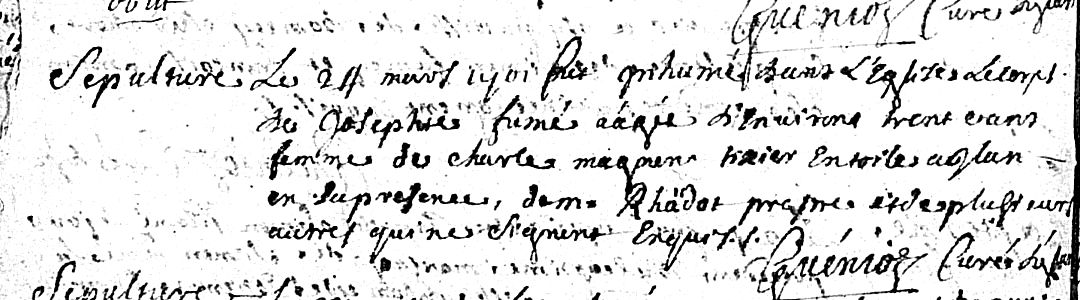 obiit
Quénioz Curé
Sepulture Le 24 mars 1701 fut Inhumé dans L'Eglise Le corps
de Josephe fumé aagée d'Environs trent e ans
femme de charle magnien tixier En toile a
en La presence, de mr Rhadot prestre et de plusieurs
autres qui ne Signent Enquis
Quénioz Curé
Sepulture